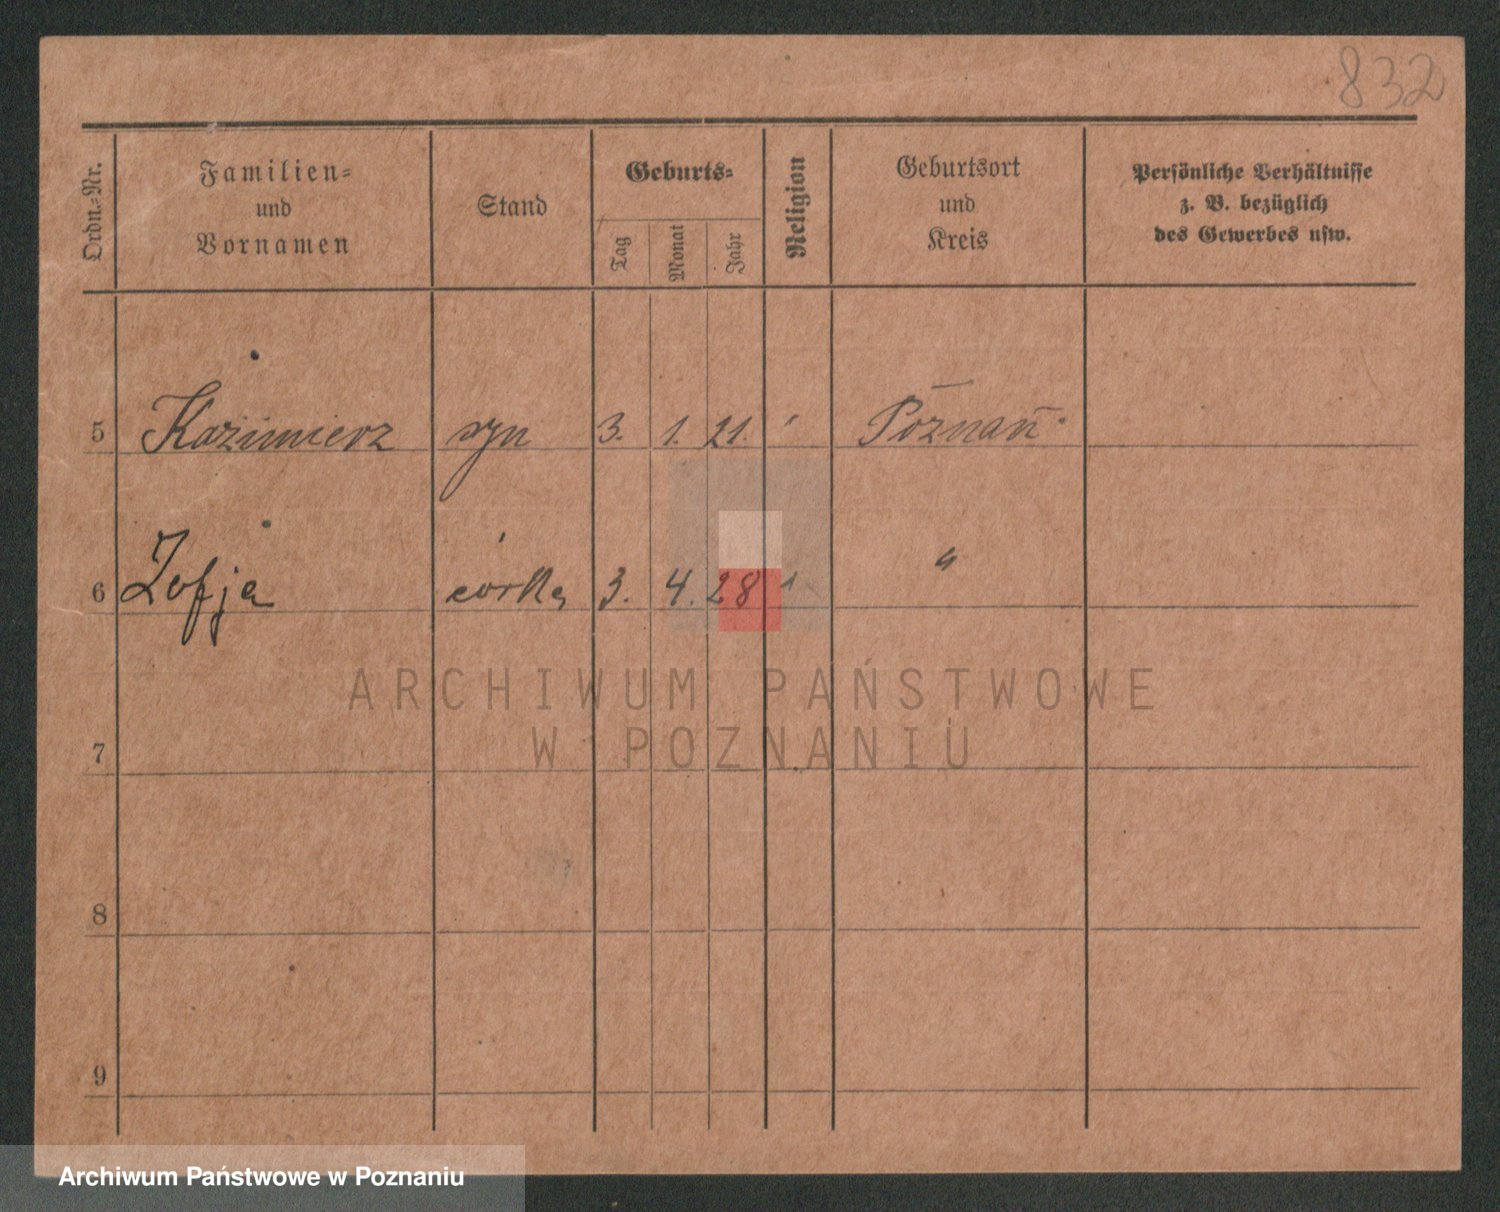 832
Ordn.-Nr.
Familien-
und
Vornamen
Stand
Geburts-
Tag
Monat
Jahr
Religion
Geburtsort
und
Kreis
Persönliche Verhältnisse
z. B. bezüglich
des Gewerbes usw.
5 Kazimierz syn 3. 1. 21. Poznań
6 Zofja córka 3. 4. 28 "
ARCHIWUM PAŃSTWOWE
W POZNANIU
7
8
9
Archiwum Państwowe w Poznaniu